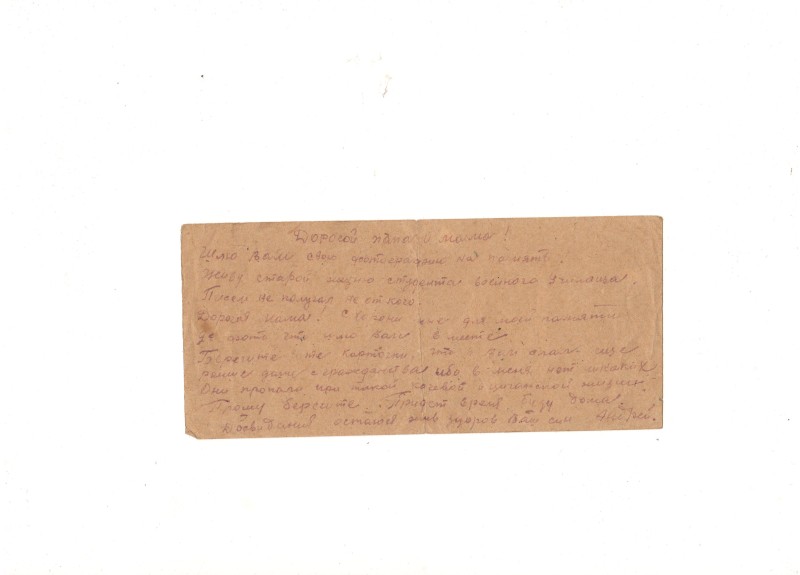 Дорогой папа и мама!
Шлю Вам свою фотографию на память.
Живу старой жизню студента военного училища.
Писем не получаю не от кого.
Дорогая мама! Сохрани для моей памяти
фото что шлю Вам
Берегите и те карточки, что я слал еще
раньше даже с гражданства ибо в меня нет никаких
Они пропали при такой кочевой и цыганской жизни.
Прошу берегите. Придет время буду дома.
Досвидания остаюсь жив здоров Ваш син Андрей.